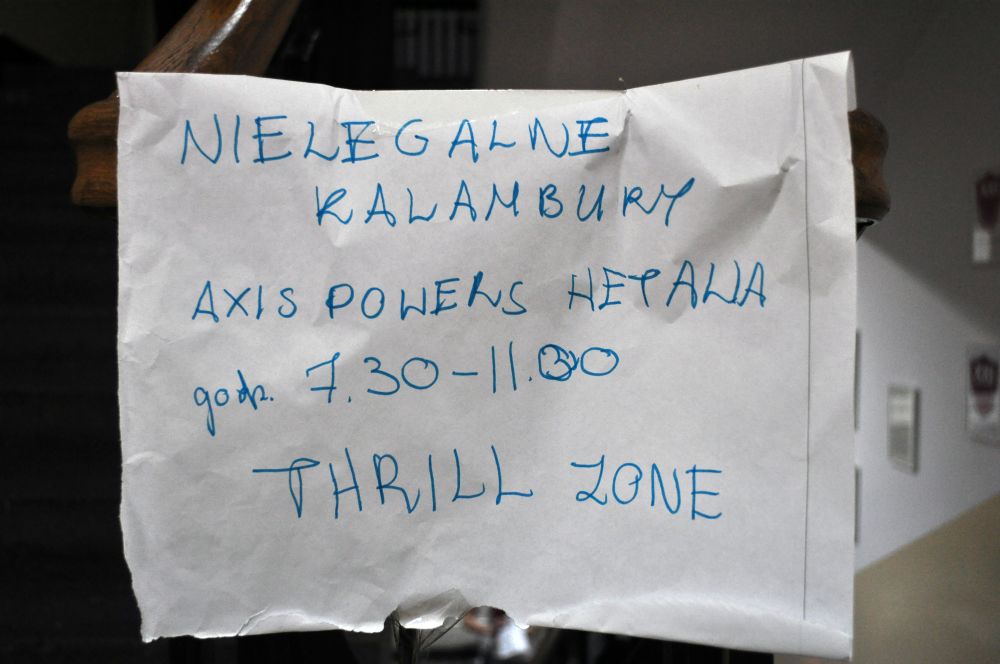 NIELEGALNE
KALAMBURY
AXIS POWERS HETALIA
godz. 7.30-11.00
THRILL ZONE